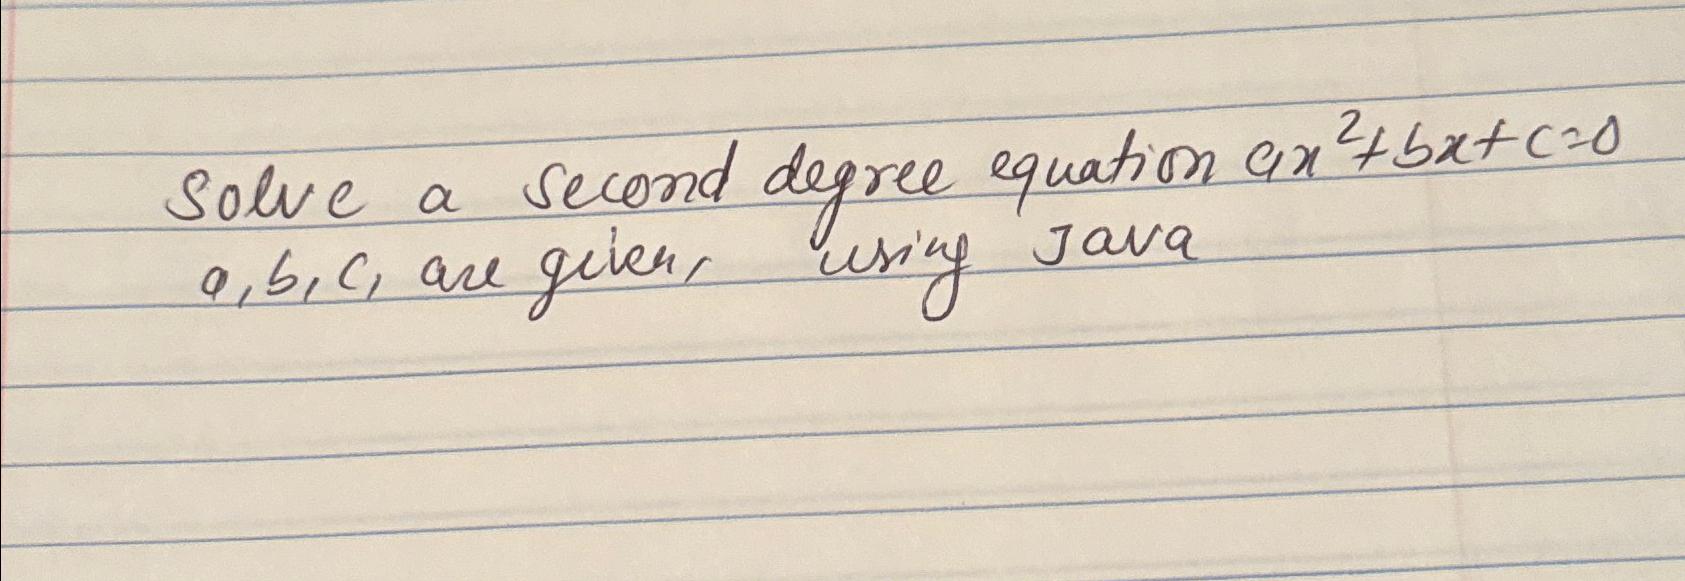 Solve a second degree equation ax²+bx+c=0
a,b,c, are given, using Java